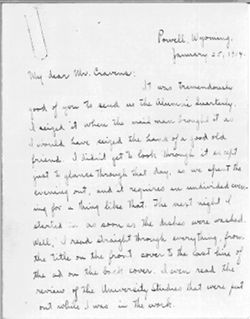 Powell, Wyoming,
January 25, 1914.
My dear Mr. Cravens:
It was tremendously
good of you to send us the Alumni Quarterly.
I seized it when the mail man brought it as
I would have seized the hand of a good old
friend. I didn't get to look through it except
just to glance through that day, as we spent the
evening out, and it requires an undivided even-
ing for a thing like that. The next night I
started in as soon as the dishes were washed.
Well, I read straight through everything, from
the title on the front cover to the last line of
the ad on the back cover. I even read the
review of the University Studies that were put
out while I was in the work.